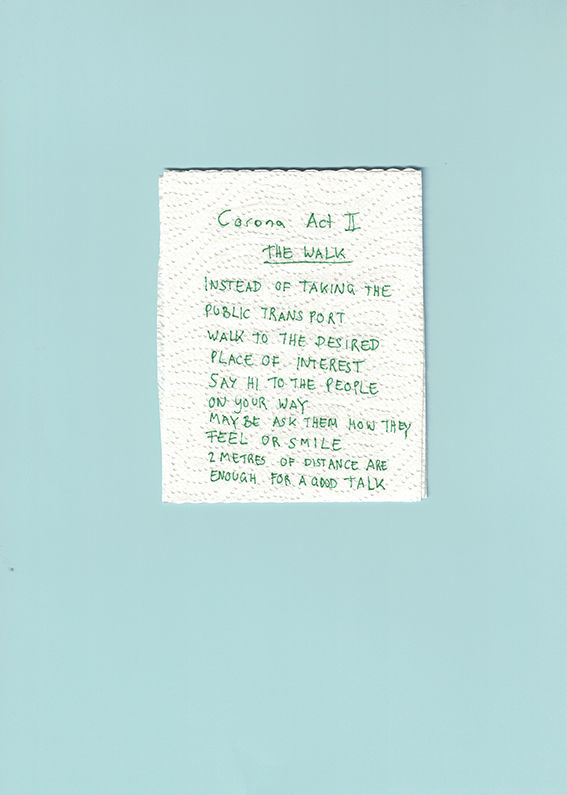 Corona Act II
THE WALK
INSTEAD OF TAKING THE
PUBLIC TRANSPORT
WALK TO THE DESIRED
PLACE OF INTEREST
SAY HI TO THE PEOPLE
ON YOUR WAY
MAYBE ASK THEM HOW THEY
FEEL OR SMILE
2 METRES OF DISTANCE ARE
ENOUGH FOR A GOOD TALK